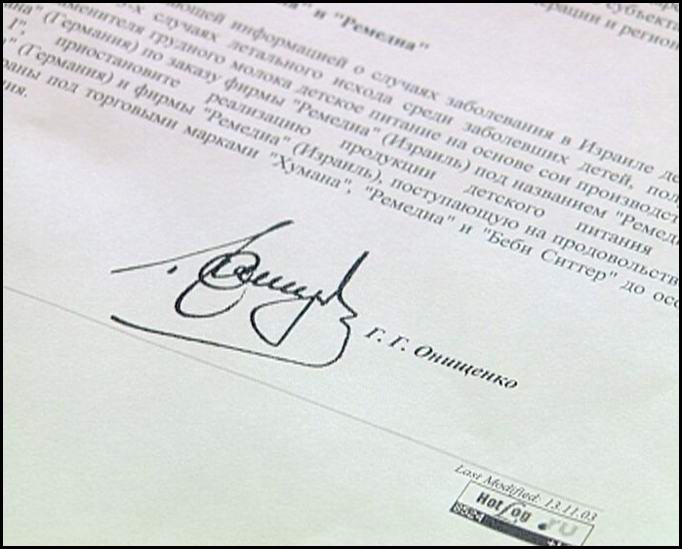 и "Ремедиа"
информацией о случаях заболевания в Израиле
случаях летального исхода среди заболевших детей,
заменителя грудного молока детское питание на основе сои
(Германия) по заказу фирмы "Ремедиа" (Израиль) под названием
приостановите реализацию продукции детского питания
(Германия) и фирмы "Ремедиа" (Израиль), поступающую на
под торговыми марками "Хумана", "Ремедиа" и "Беби Ситтер" до
Г. Г. Онищенко
Last Modified: 13.11.03
HotLog .ru